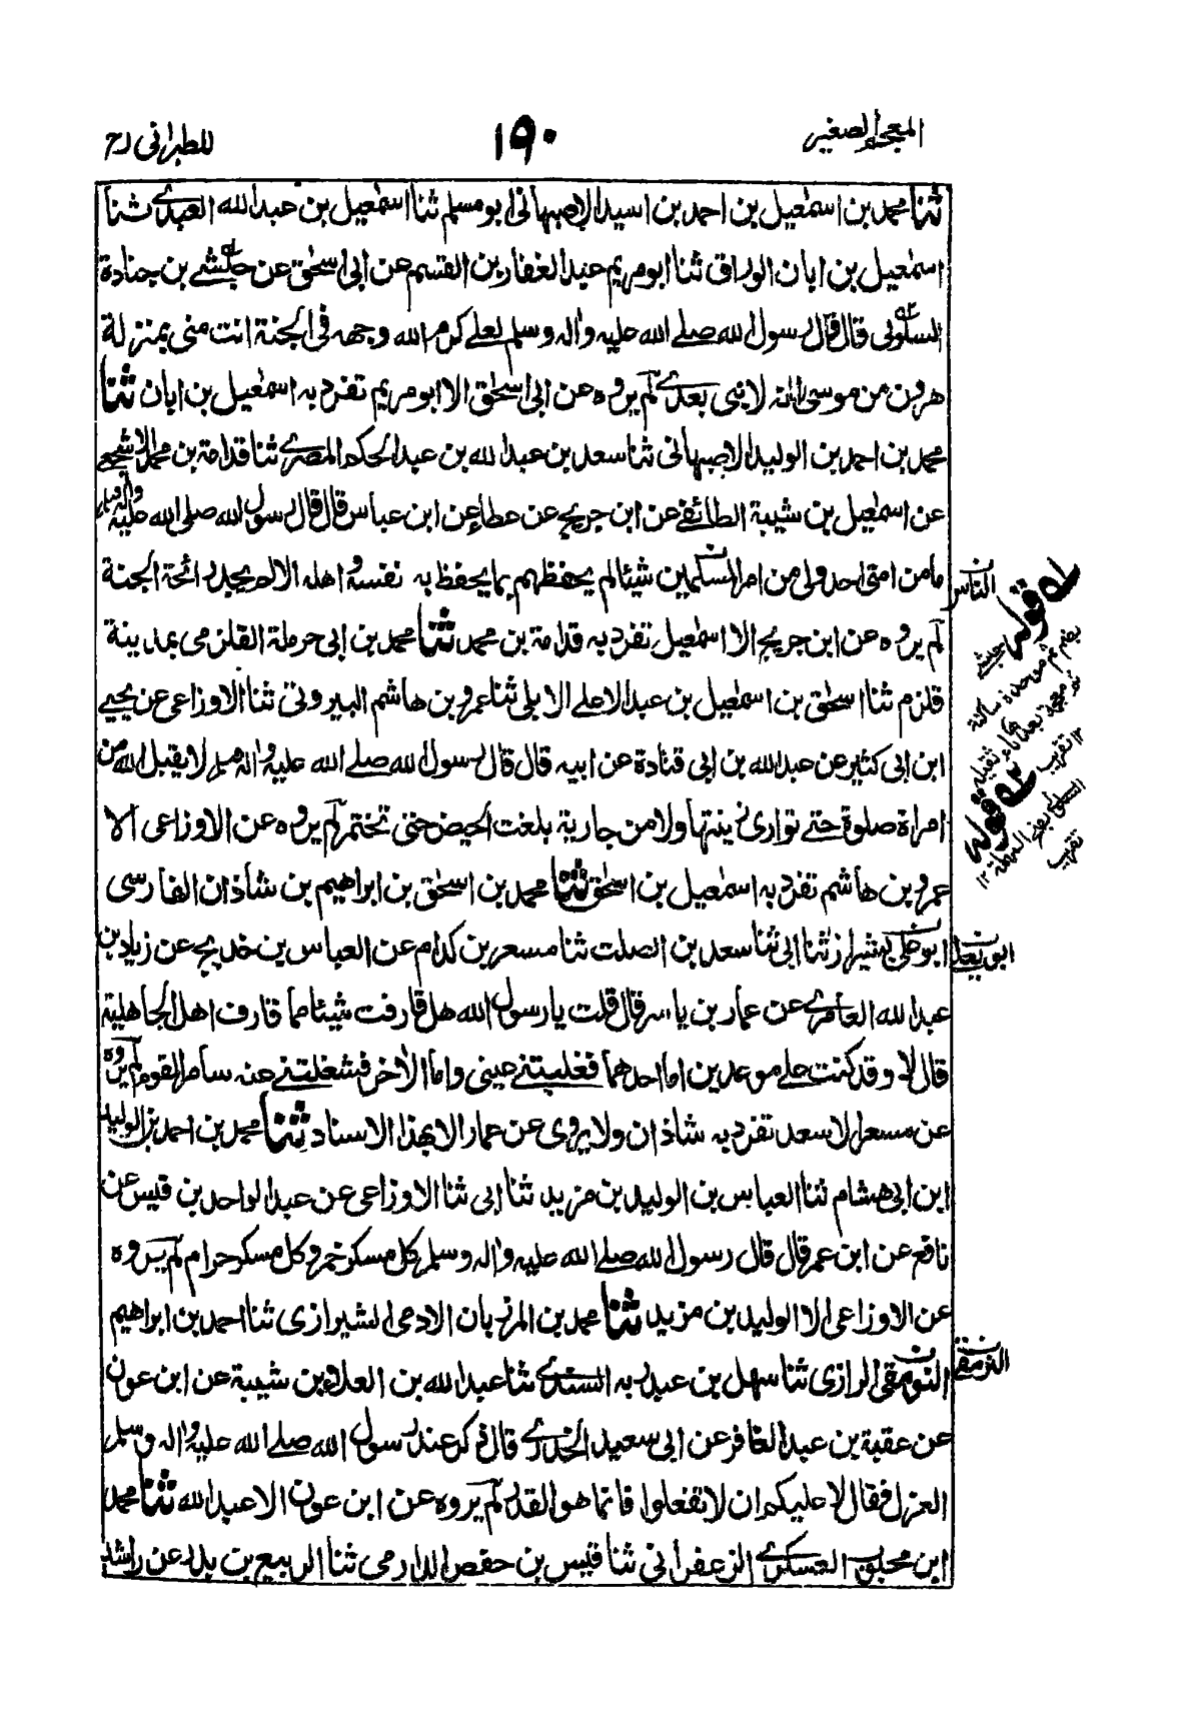 المعجم الصغير
١٩٠
للطبرانى رح
ثنا محمد بن اسمٰعيل بن احمد بن اسيد الاصبهانى ابو مسلم ثنا اسمٰعيل بن عبد الله العبدے ثنا
اسمٰعيل بن ابان الوراق ثنا ابو مريم عبد الغفار بن القسم عن ابى اسحٰق عن حبشے بن جنادة
السلولى قال قال رسول الله صلے الله عليه واٰله وسلم لعلے كرم الله وجهه فى الجنة انت منى بمنزلة
هرون من موسى الا انه لا نبى بعدے لم يروه عن ابى اسحٰق الا ابو مريم تفرد به اسمٰعيل بن ابان ثنا
محمد بن احمد بن الوليد الاصبهانى ثنا سعد بن عبد الله بن عبد الحكم المصرے ثنا قدامة بن محمد الاشجعے
عن اسمٰعيل بن شيبة الطائفے عن ابن جريج عن عطاء عن ابن عباس قال قال رسول الله صلى الله عليه واٰله وسلم
ما من امتى احد ولى من امر المسلمين شيئا لم يحفظهم بما يحفظ به نفسه و اهله الا لم يجد رائحة الجنة
لم يروه عن ابن جريج الا اسمٰعيل تفرد به قدامة بن محمد ثنا محمد بن ابى حرملة القلزمى بمدينة
قلزم ثنا اسحٰق بن اسمٰعيل بن عبد الاعلے الايلى ثنا عمرو بن هاشم البيروتى ثنا الاوزاعى عن يحيے
ابن ابى كثير عن عبد الله بن ابى قتادة عن ابيه قال قال رسول الله صلے الله عليه واٰله وسلم لا يقبل الله من
امراة صلوة حتے توارى زينتها ولا من جارية بلغت الحيض حتى تختمر لم يروه عن الاوزاعى الا
عمرو بن هاشم تفرد به اسمٰعيل بن اسحٰق ثنا محمد بن اسحٰق بن ابراهيم بن شاذان الفارسى
بشيراز ثنا ابى ثنا سعد بن الصلت ثنا مسعر بن كدام عن العباس بن خديج عن زياد بن
عبد الله العامرے عن عمار بن ياسر قال قلت يا رسول الله هل قارفت شيئا مما قارف اهل الجاهلية
قال لا وقد كنت علے موعدين اما احدهما فغلبتنے عينى واما الاٰخر فشغلتنے عنه سامر القوم لم يروه
عن مسعر الا سعد تفرد به شاذان ولا يروى عن عمار الا بهذا الاسناد ثنا محمد بن احمد بن الوليد
ابن ابى هشام ثنا العباس بن الوليد بن مزيد ثنا ابى ثنا الاوزاعى عن عبد الواحد بن قيس عن
نافع عن ابن عمر قال قال رسول الله صلے الله عليه واٰله وسلم كل مسكر خمر وكل مسكر حرام لم يروه
عن الاوزاعى الا الوليد بن مزيد ثنا محمد بن المرزبان الادمى الشيرازى ثنا احمد بن ابراهيم
النرمقى الرازى ثنا سهل بن عبد ربه السندے ثنا عبد الله بن العلاء بن شيبة عن ابن عون
عن عقبة بن عبد الغافر عن ابى سعيد الخدرے قال ذكر عند رسول الله صلے الله عليه واٰله وسلم
العزل فقال لا عليكم ان لا تفعلوا فانما هو القدر لم يروه عن ابن عون الا عبد الله ثنا محمد
ابن محلب العسكرے الزعفرانى ثنا قيس بن حفص الدارمى ثنا الربيع بن بدر عن راشد
الناس
قوله
حبشے
بضم ثم موحدة ساكنة
ثم معجمة بعدها ياء ثقيلة
١٢ تقريب
قوله
السلولى بفتح المهملة ١٢
تقريب
النرمقى